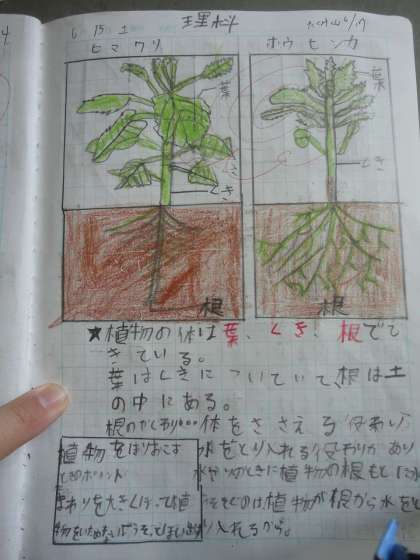 6 15 土 理科
ヒマワリ ホウセンカ
葉 葉
くき
くき
根 根
★植物の体は葉、くき、根でで
きている。
葉はくきについていて、根は土
の中にある。
根のやくわり…体をささえる役わり
水をとり入れる役わりがあり
水やりのときに植物の根もとに水
をそそぐのは植物が根から水をと
り入れるから。
植物をほりおこす
ときのポイント
まわりを大きくほって植
物をいためないようそっとほり出す